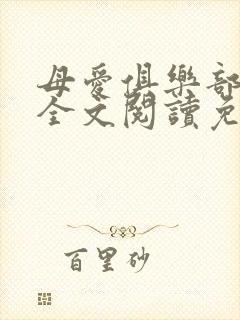 母愛俱樂部
全文閱讀免
百里砂